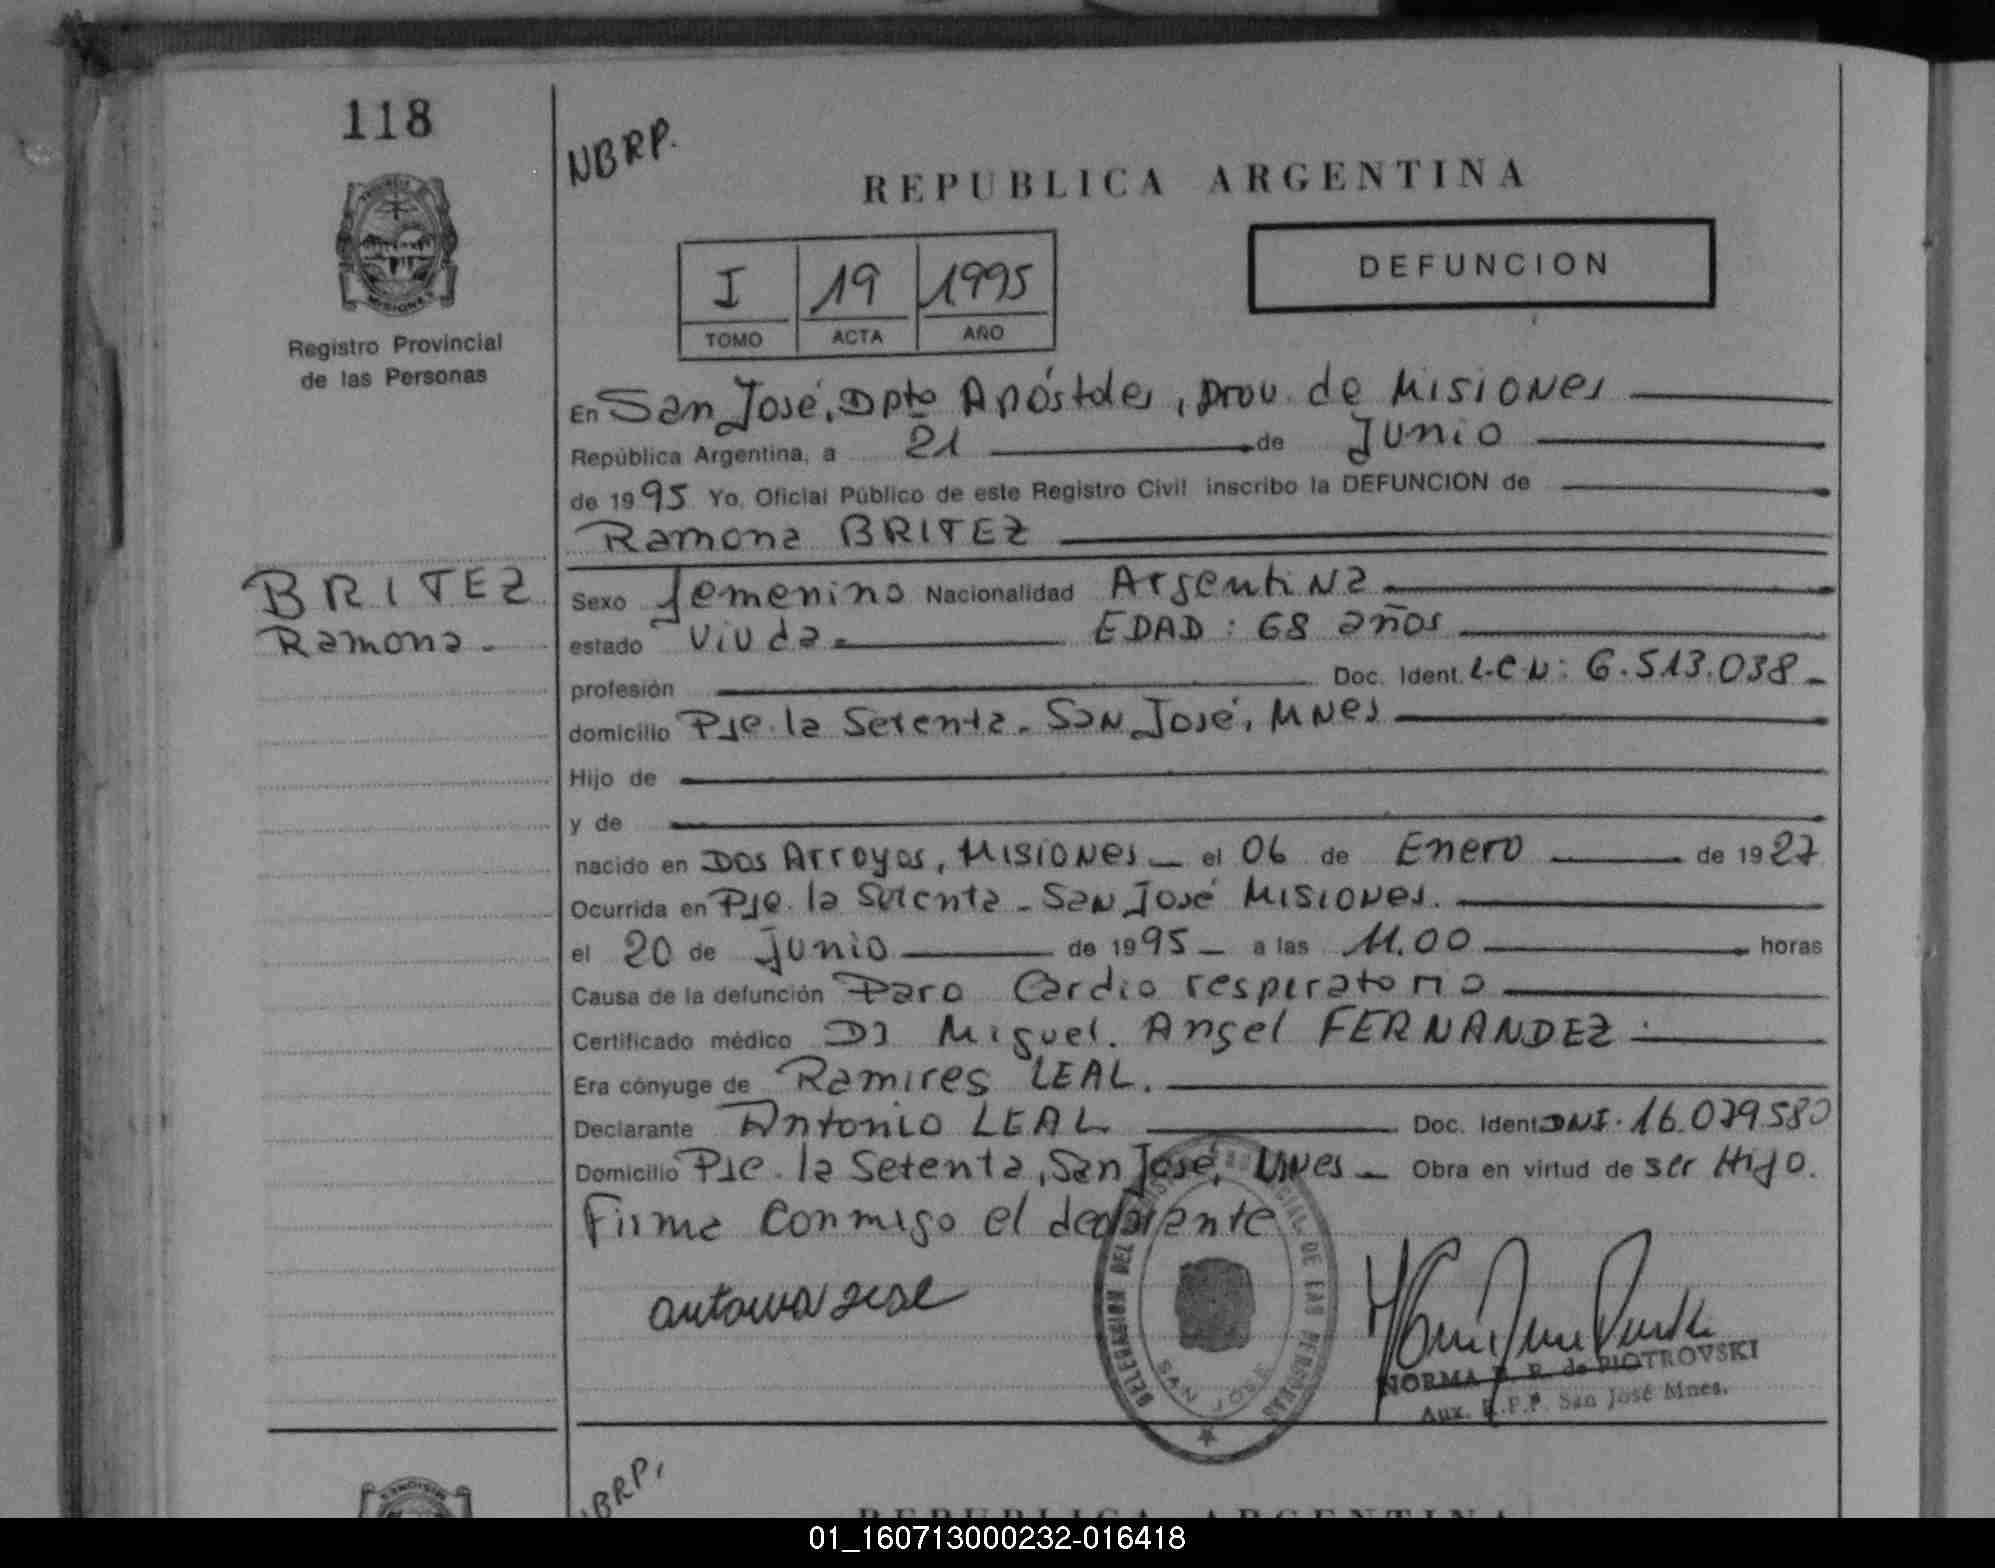 118
NBRP.
REPUBLICA ARGENTINA
I 19 1995
TOMO ACTA AÑO
DEFUNCION
MISIONES
Registro Provincial
de las Personas
En San José, Dpto Apóstoles, Prov. de Misiones
República Argentina, a 21 de Junio
de 1995 Yo, Oficial Público de este Registro Civil inscribo la DEFUNCION de
Ramona BRITEZ
BRITEZ
Ramona.
Sexo femenino Nacionalidad Argentina
estado viuda. EDAD: 68 años
profesión Doc. Ident. L.C.N: 6.513.038
domicilio Pje. la Setenta. San José, Mnes
Hijo de
y de
nacido en Dos Arroyos, Misiones el 06 de Enero de 1927
Ocurrida en Pje. la Setenta - San José Misiones.
el 20 de Junio de 1995 a las 11.00 horas
Causa de la defunción Paro Cardio respiratorio
Certificado médico Dr Miguel. Angel FERNANDEZ.
Era cónyuge de Ramires LEAL.
Declarante Antonio LEAL Doc. Ident DNI. 16.079.580
Domicilio Pje. la Setenta, San José, Mnes Obra en virtud de ser Hijo.
Firma conmigo el declarante
DELEGACION DEL REGISTRO PROVINCIAL DE LAS PERSONAS
SAN JOSE
NORMA de PIOTROVSKI
Aux. R.P.P. San José Mnes.
NBRP,
REPUBLICA ARGENTINA
01_160713000232-016418